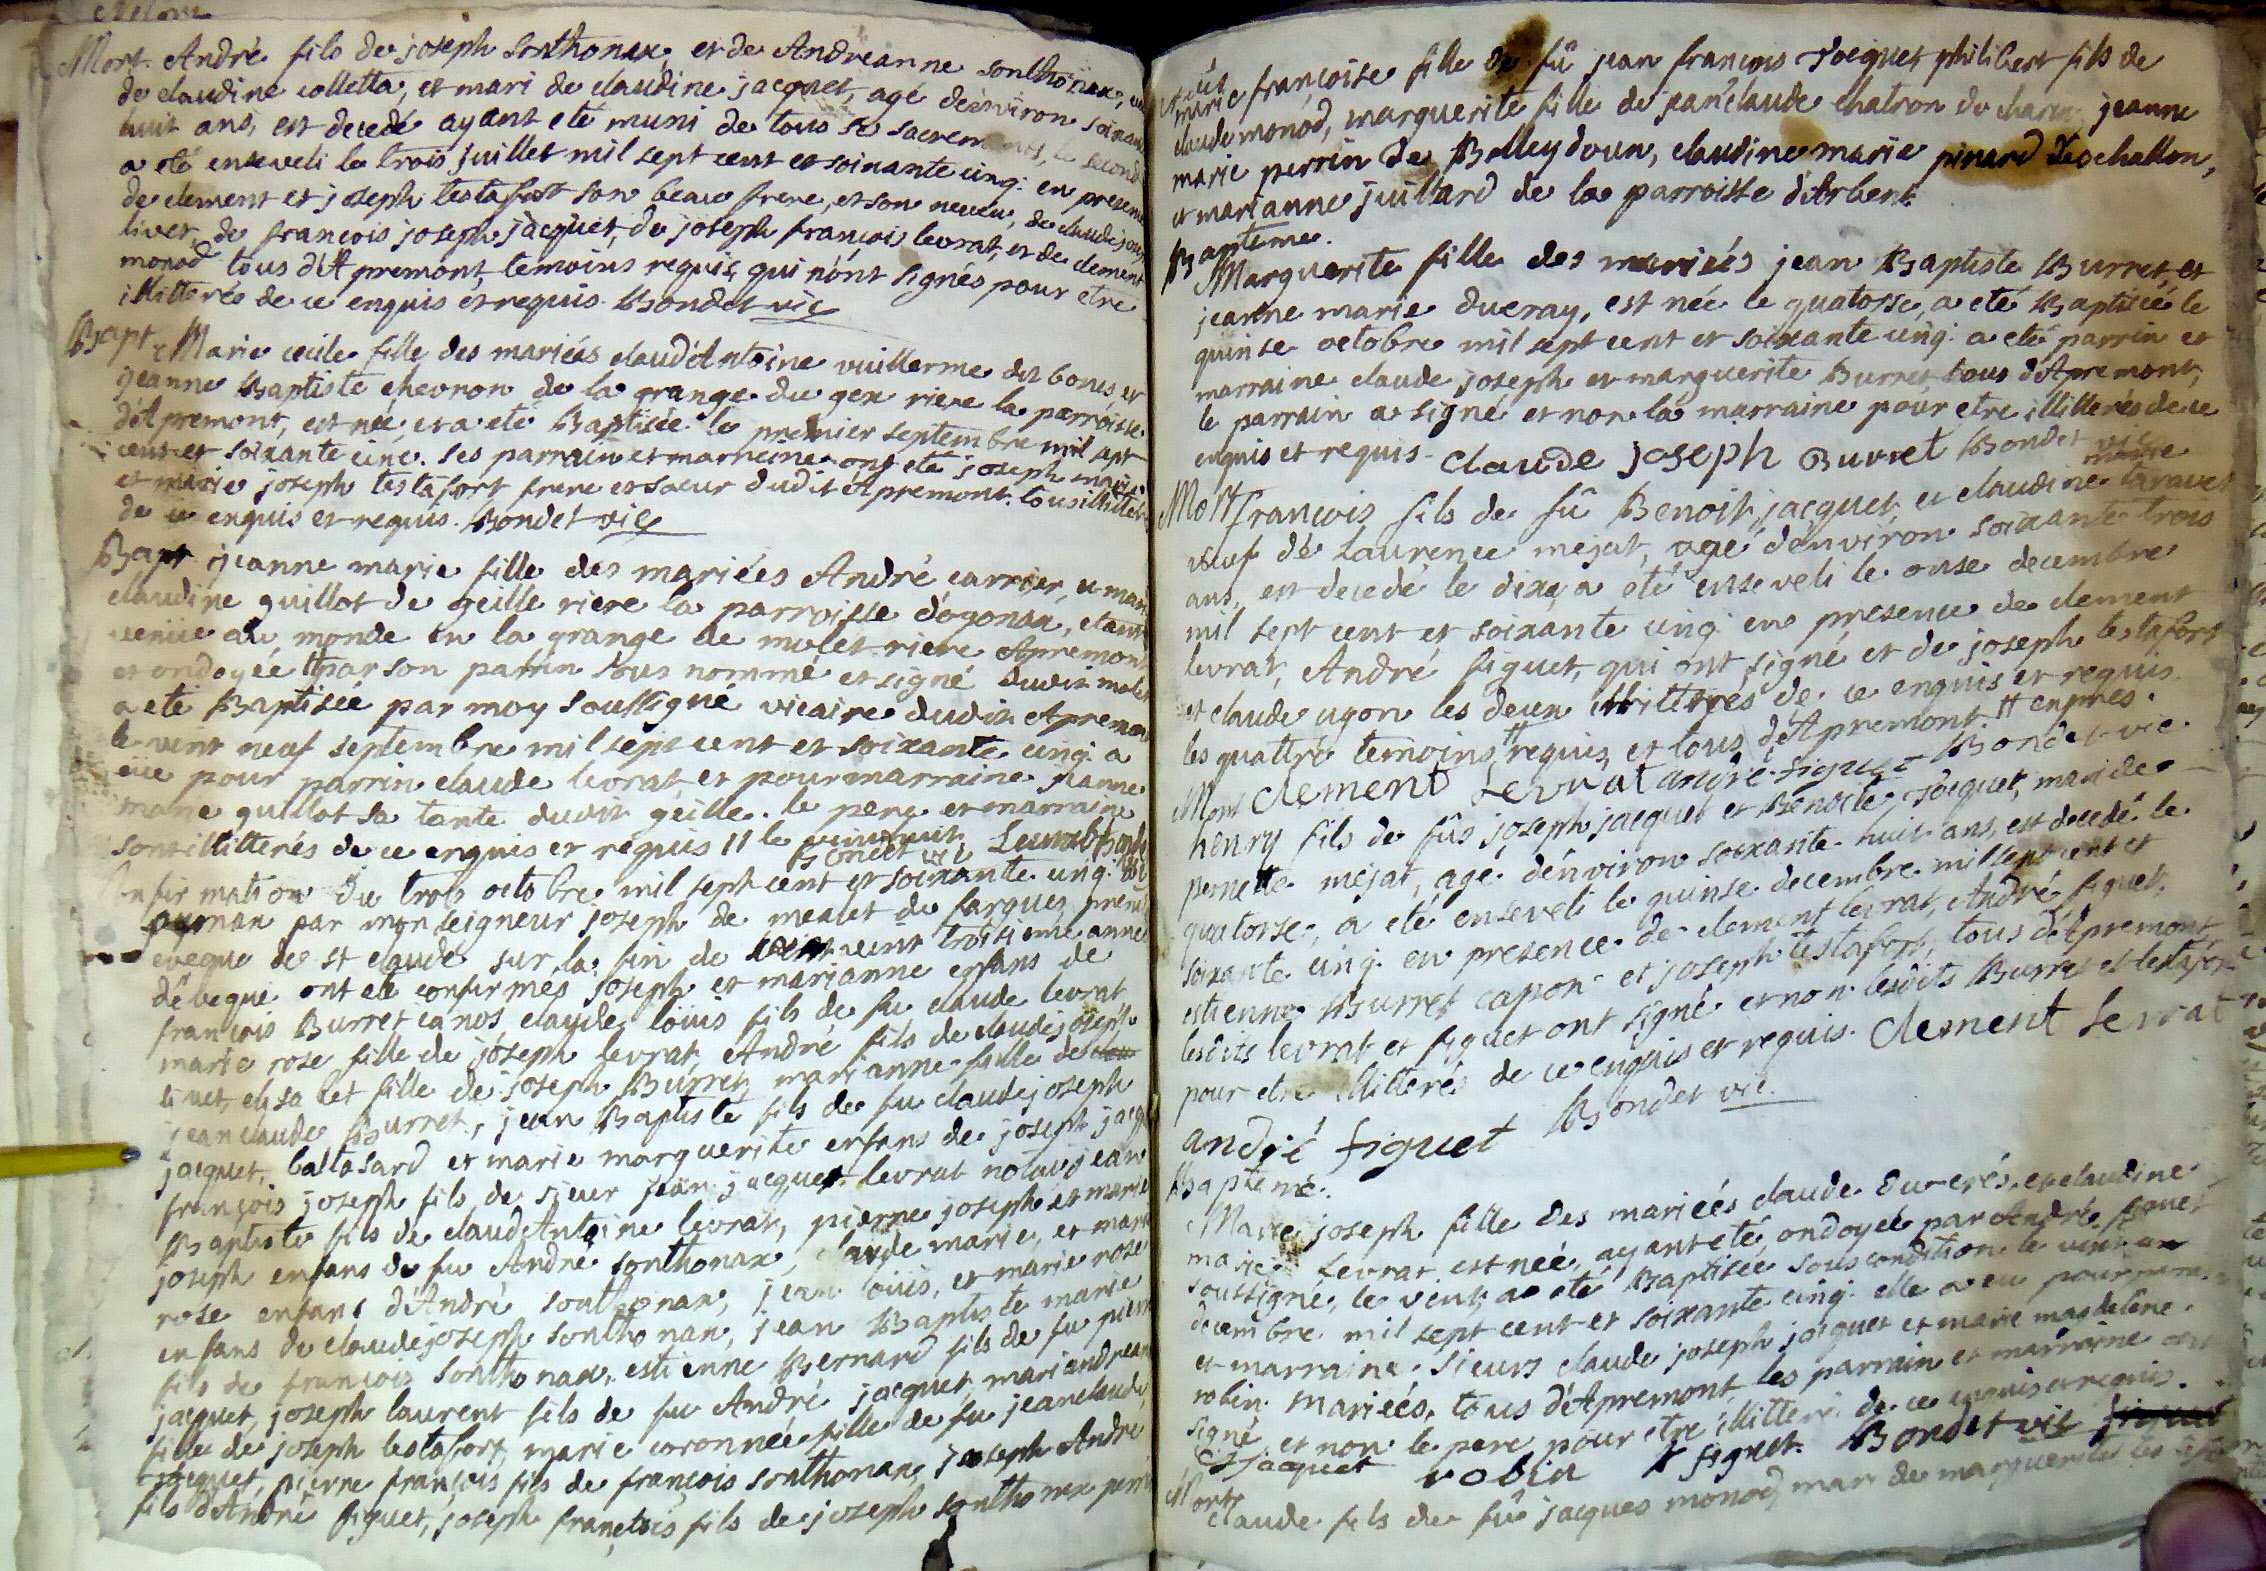 Mort. André fils de joseph sonthonax, et de Andreanne sonthonax,
de claudine colletta, et mari de claudine jacquet, agé d'environ soixante
huit ans, est decedé ayant eté muni de tous se sacremens, le second
a eté enseveli le trois juillet mil sept cent et soixante cinq. en presence
de clement et joseph testafort son beau frere, et son neveu, de claude joseph
livet, de françois joseph jacquet, de joseph françois levrat, et de clement
monod tous d'Apremont, temoins requis, qui n'ont signés pour etre
illitterés de ce enquis et requis. Bondet vic
Bapt. Marie cecile fille des mariées claud'Antoine vuillerme dit bones, et
jeanne Baptiste chevron de la grange du gex riere la parroisse
d'Apremont, est née, et a eté Baptisée le premier septembre mil sept
cent et soixante cinc. ses parrain et marreine ont eté joseph marie
et marie joseph testafort frere et soeur dudit Apremont. tous illitterés
de ce enquis et requis. Bondet vic
Bapt jeanne marie fille des mariées André carrier, et marie
claudine guillot de geille riere la parroisse d'ogonax, etant
venüe au monde en la grange de molet riere Apremont
et ondoyée par son parrin sous nommé et signé dudit molet
a eté Baptisée par moy soussigné vicaire dudit Apremont
le vint neuf septembre mil sept cent et soixante cinq. a
eüe pour parrin claude levrat, et pour marraine jeanne
marie guillot sa tante dudit geille. le pere et marraine
sont illitterés de ce enquis et requis 11 le vint huit Levrat
Bondet vic
Confirmation du trois octobre mil sept cent et soixante cinq.
ogonax par monseigneur joseph de mealet de fargues premier
eveque de st claude sur la fin de vint troisieme année
d'evequé ont eté confirmés joseph et marianne enfans de
françois Burret canos, claude louis fils de fu claude levrat,
marie rose fille de joseph levrat, André fils de claude joseph
livet, elisabet fille de joseph Burret, marianne fille de
jean claude Burret, jean Baptiste fils de fu claude joseph
jacquet, baltasard et marie marguerite enfans de joseph jacquet
françois joseph fils de sieur jean jacques levrat notair, jean
Baptiste fils de claud'Antoine levrat, pierre joseph et marie
joseph enfans de fu André sonthonax, claude marie, et marie
rose enfans d'André sonthonax, jean louis, et marie rose
enfans de claude joseph sonthonax, jean Baptiste marie
fils de françois sonthonax, estienne Bernard fils de fu pierre
jacquet, joseph laurent fils de fu André jacquet, mariandreanne
fille de joseph testafort, marie coronnée fille de fu jean claude
jacquet, pierre françois fils de françois sonthonax, joseph André
fils d'André figuet, joseph françois fils de joseph sonthonax
marie françoise fille de fû jean françois Jacquet, philibert fils de
claude monod, marguerite fille de jean claude chatron du charix, jeanne
marie perrin de Belleydoux, claudine marie pinard d'Echallon,
et marianne juillard de la parroisse d'Arbent.
Bapteme.
Marguerite fille des mariées jean Baptiste Burret, et
jeanne marie ducray, est née le quatorse, a eté Baptisée le
quinse octobre mil sept cent et soixante cinq. a eté parrin et
marraine claude joseph et marguerite Burret tous d'Apremont,
le parrain a signé et non la marraine pour etre illitterés de ce
enquis et requis. claude joseph Burret Bondet vic
Mort françois fils de fû Benoit jacquet, et claudine marie taravet
veuf de laurence mejat, agé d'environ soixante trois
ans, est decedé le dix, a eté enseveli le onse decembre
mil sept cent et soixante cinq. en presence de clement
levrat, André figuet, qui ont signé et de joseph testafort
et claude ugon les deux illitterés de ce enquis et requis.
les quattre temoins # requis, et tous d'Apremont. # expres.
clement Levrat andré figuet Bondet vic
Mort
henry fils de fûs joseph jacquet et Benoite Jacquet, mari de
pernette mejat, agé d'environ soixante huit ans, est decedé le
quatorse, a eté enseveli le quinse decembre mil sept cent et
soixante cinq. en presence de clement levrat, André figuet,
estienne Burret capon et joseph testafort, tous d'Apremont,
lesdits levrat et figuet ont signé et non lesdits Burret et testafort
pour etre illitterés de ce enquis et requis. Clement Levrat
andré figuet Bondet vic.
Bapteme.
Marie joseph fille des mariées claude ducrés, et claudine
marie levrat est née, ayant eté ondoyée par André figuet
soussigné, le vint, a eté Baptisée sous condition le vint un
decembre mil sept cent et soixante cinq. elle a eu pour parrain
et marraine sieurs claude joseph jacquet et marie magdelene
robin mariées, tous d'Apremont, les parrain et marraine ont
signé et non le pere pour etre illitteré de ce enquis et requis.
Cj Jacquet robin A figuet. Bondet vic figuet
Mort
claude fils de fû jacques monod, mari de marguerite